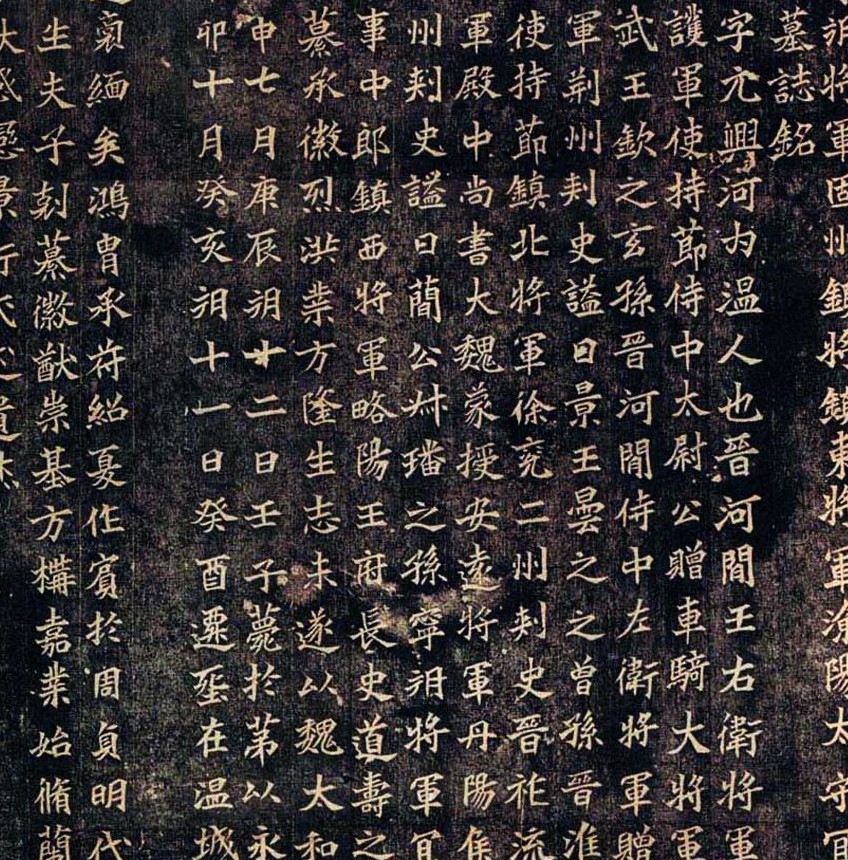 朔將軍固州鎮將鎮東將軍漁陽太守宜
墓誌銘
字元興河內温人也晉河間王右衛將軍
護軍使持節侍中太尉公贈車騎大將軍
武王欽之玄孫晉河間侍中左衛將軍贈
軍荊州刺史謚曰景王曇之之曾孫晉淮
使持節鎮北將軍徐兖二州刺史晉祚流
軍殿中尚書大魏蒙授安遠將軍丹陽侯
州刺史謚曰蕳公叔璠之孫寧朔將軍宜
事中郎鎮西將軍略陽王府長史道壽之
纂承徽烈洪業方隆生志未遂以魏太和
申七月庚辰朔十二日壬子薨扵苐以永
卯十月癸亥朔十一日癸酉遷葬在温城
裔緬矣鴻胄承苻紹夏作賓扵周貞明代
生夫子剋纂徽猷崇基方構嘉業始脩蘭
景行